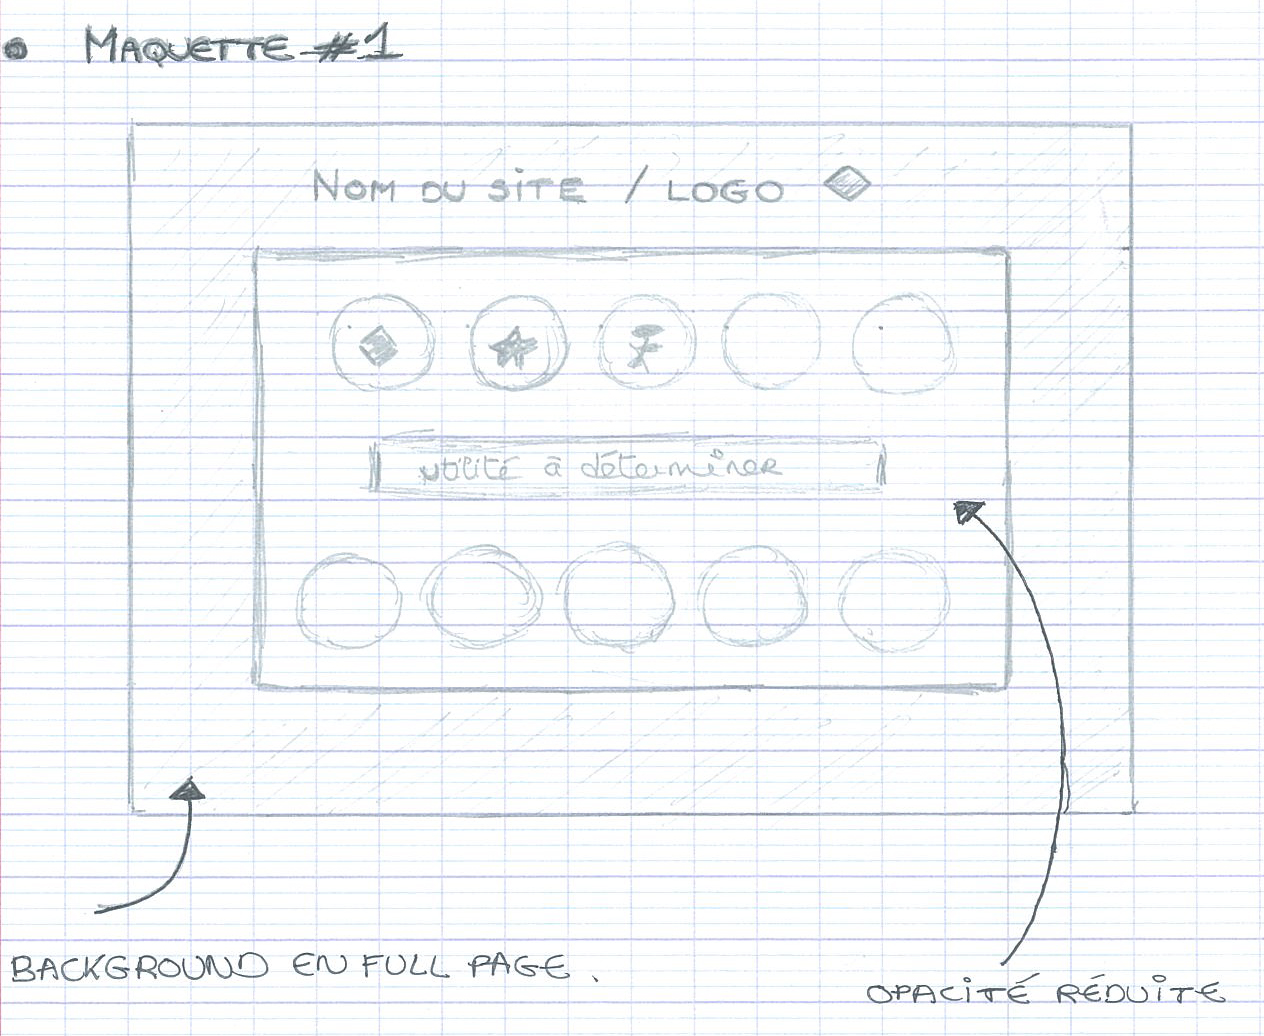 • MAQUETTE #1
NOM DU SITE / LOGO
utilité à déterminer
BACKGROUND EN FULL PAGE.
OPACITÉ RÉDUITE